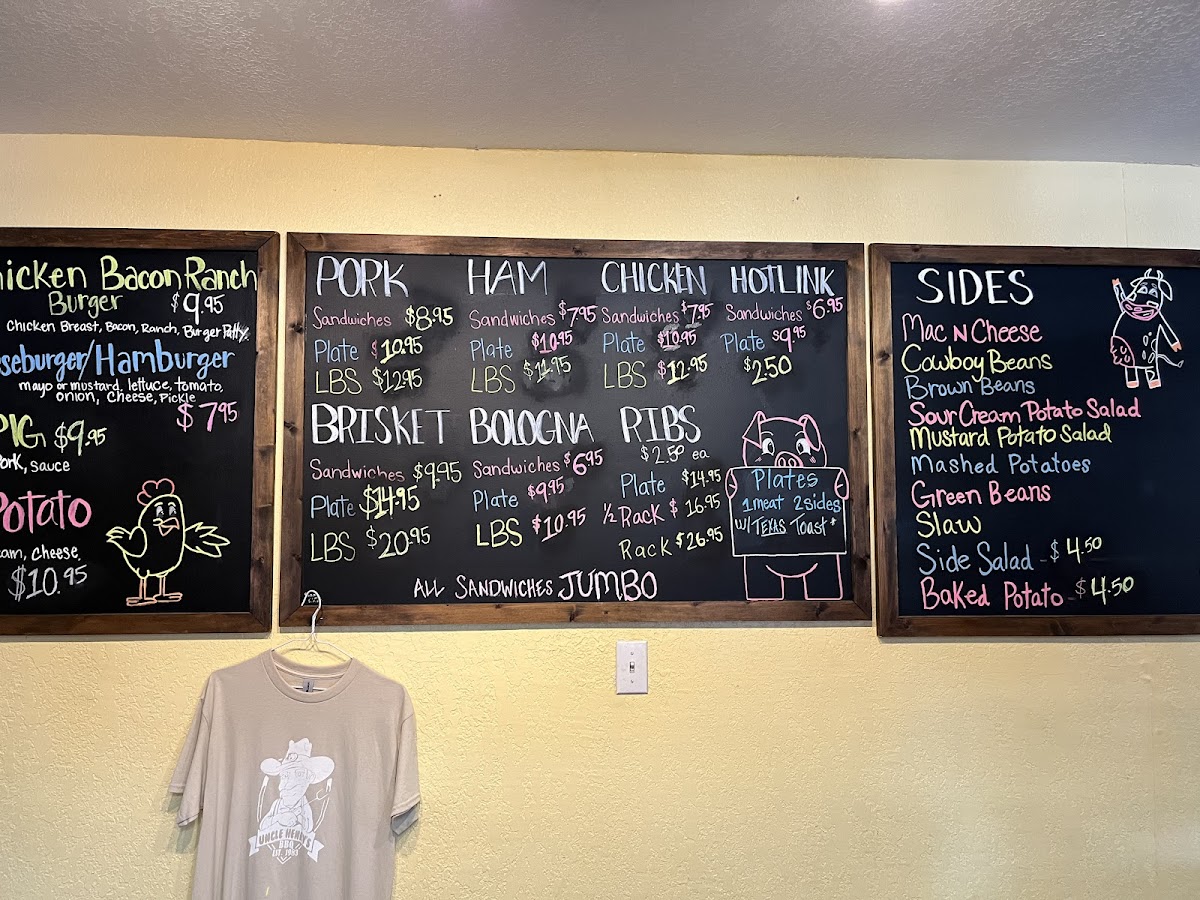 hicken Bacon Ranch
Burger $9.95
Chicken Breast, Bacon, Ranch, Burger Patty
eseburger/Hamburger
mayo or mustard, lettuce, tomato,
onion, Cheese, Pickle
$7.95
PIG $9.95
Pork, sauce
Potato
eam, Cheese,
$10.95
PORK
Sandwiches $8.95
Plate $10.95
LBS $12.95
HAM
Sandwiches $7.95
Plate $10.95
LBS $11.95
CHICKEN
Sandwiches $7.95
Plate $10.95
LBS $12.95
HOTLINK
Sandwiches $6.95
Plate $9.95
$2.50
BRISKET
Sandwiches $9.95
Plate $14.95
LBS $20.95
BOLOGNA
Sandwiches $6.95
Plate $9.95
LBS $10.95
RIBS
$2.50 ea
Plate $14.95
1/2 Rack $16.95
Rack $26.95
Plates
1 meat 2 sides
W/ TEXAS Toast*
ALL SANDWICHES JUMBO
SIDES
Mac N Cheese
Cowboy Beans
Brown Beans
Sour Cream Potato Salad
Mustard Potato Salad
Mashed Potatoes
Green Beans
Slaw
Side Salad - $4.50
Baked Potato - $4.50
UNCLE HENRY'S
BBQ
EST. 1983